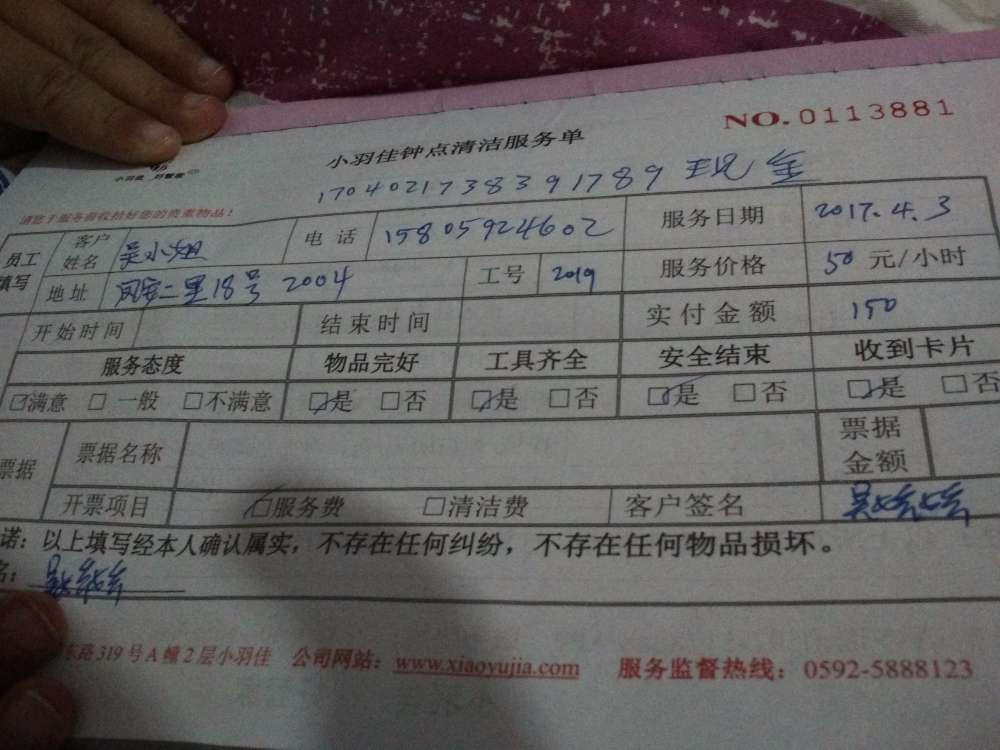 NO.0113881
小羽佳钟点清洁服务单
1704021738391789 现金
请您于服务前收拾好您的贵重物品！
员工填写 客户姓名 吴小姐 电话 15805924602 服务日期 2017.4.3
地址 二里18号 2004 工号 2019 服务价格 50 元/小时
开始时间 结束时间 实付金额 150
服务态度 物品完好 工具齐全 安全结束 收到卡片
☑满意 □一般 □不满意 ☑是 □否 ☑是 □否 ☑是 □否 ☑是 □否
票据 票据名称 票据金额
开票项目 ☑服务费 □清洁费 客户签名 吴婷婷
诺：以上填写经本人确认属实，不存在任何纠纷，不存在任何物品损坏。
名：吴婷婷
东路319号A幢2层小羽佳 公司网站：www.xiaoyujia.com 服务监督热线：0592-5888123